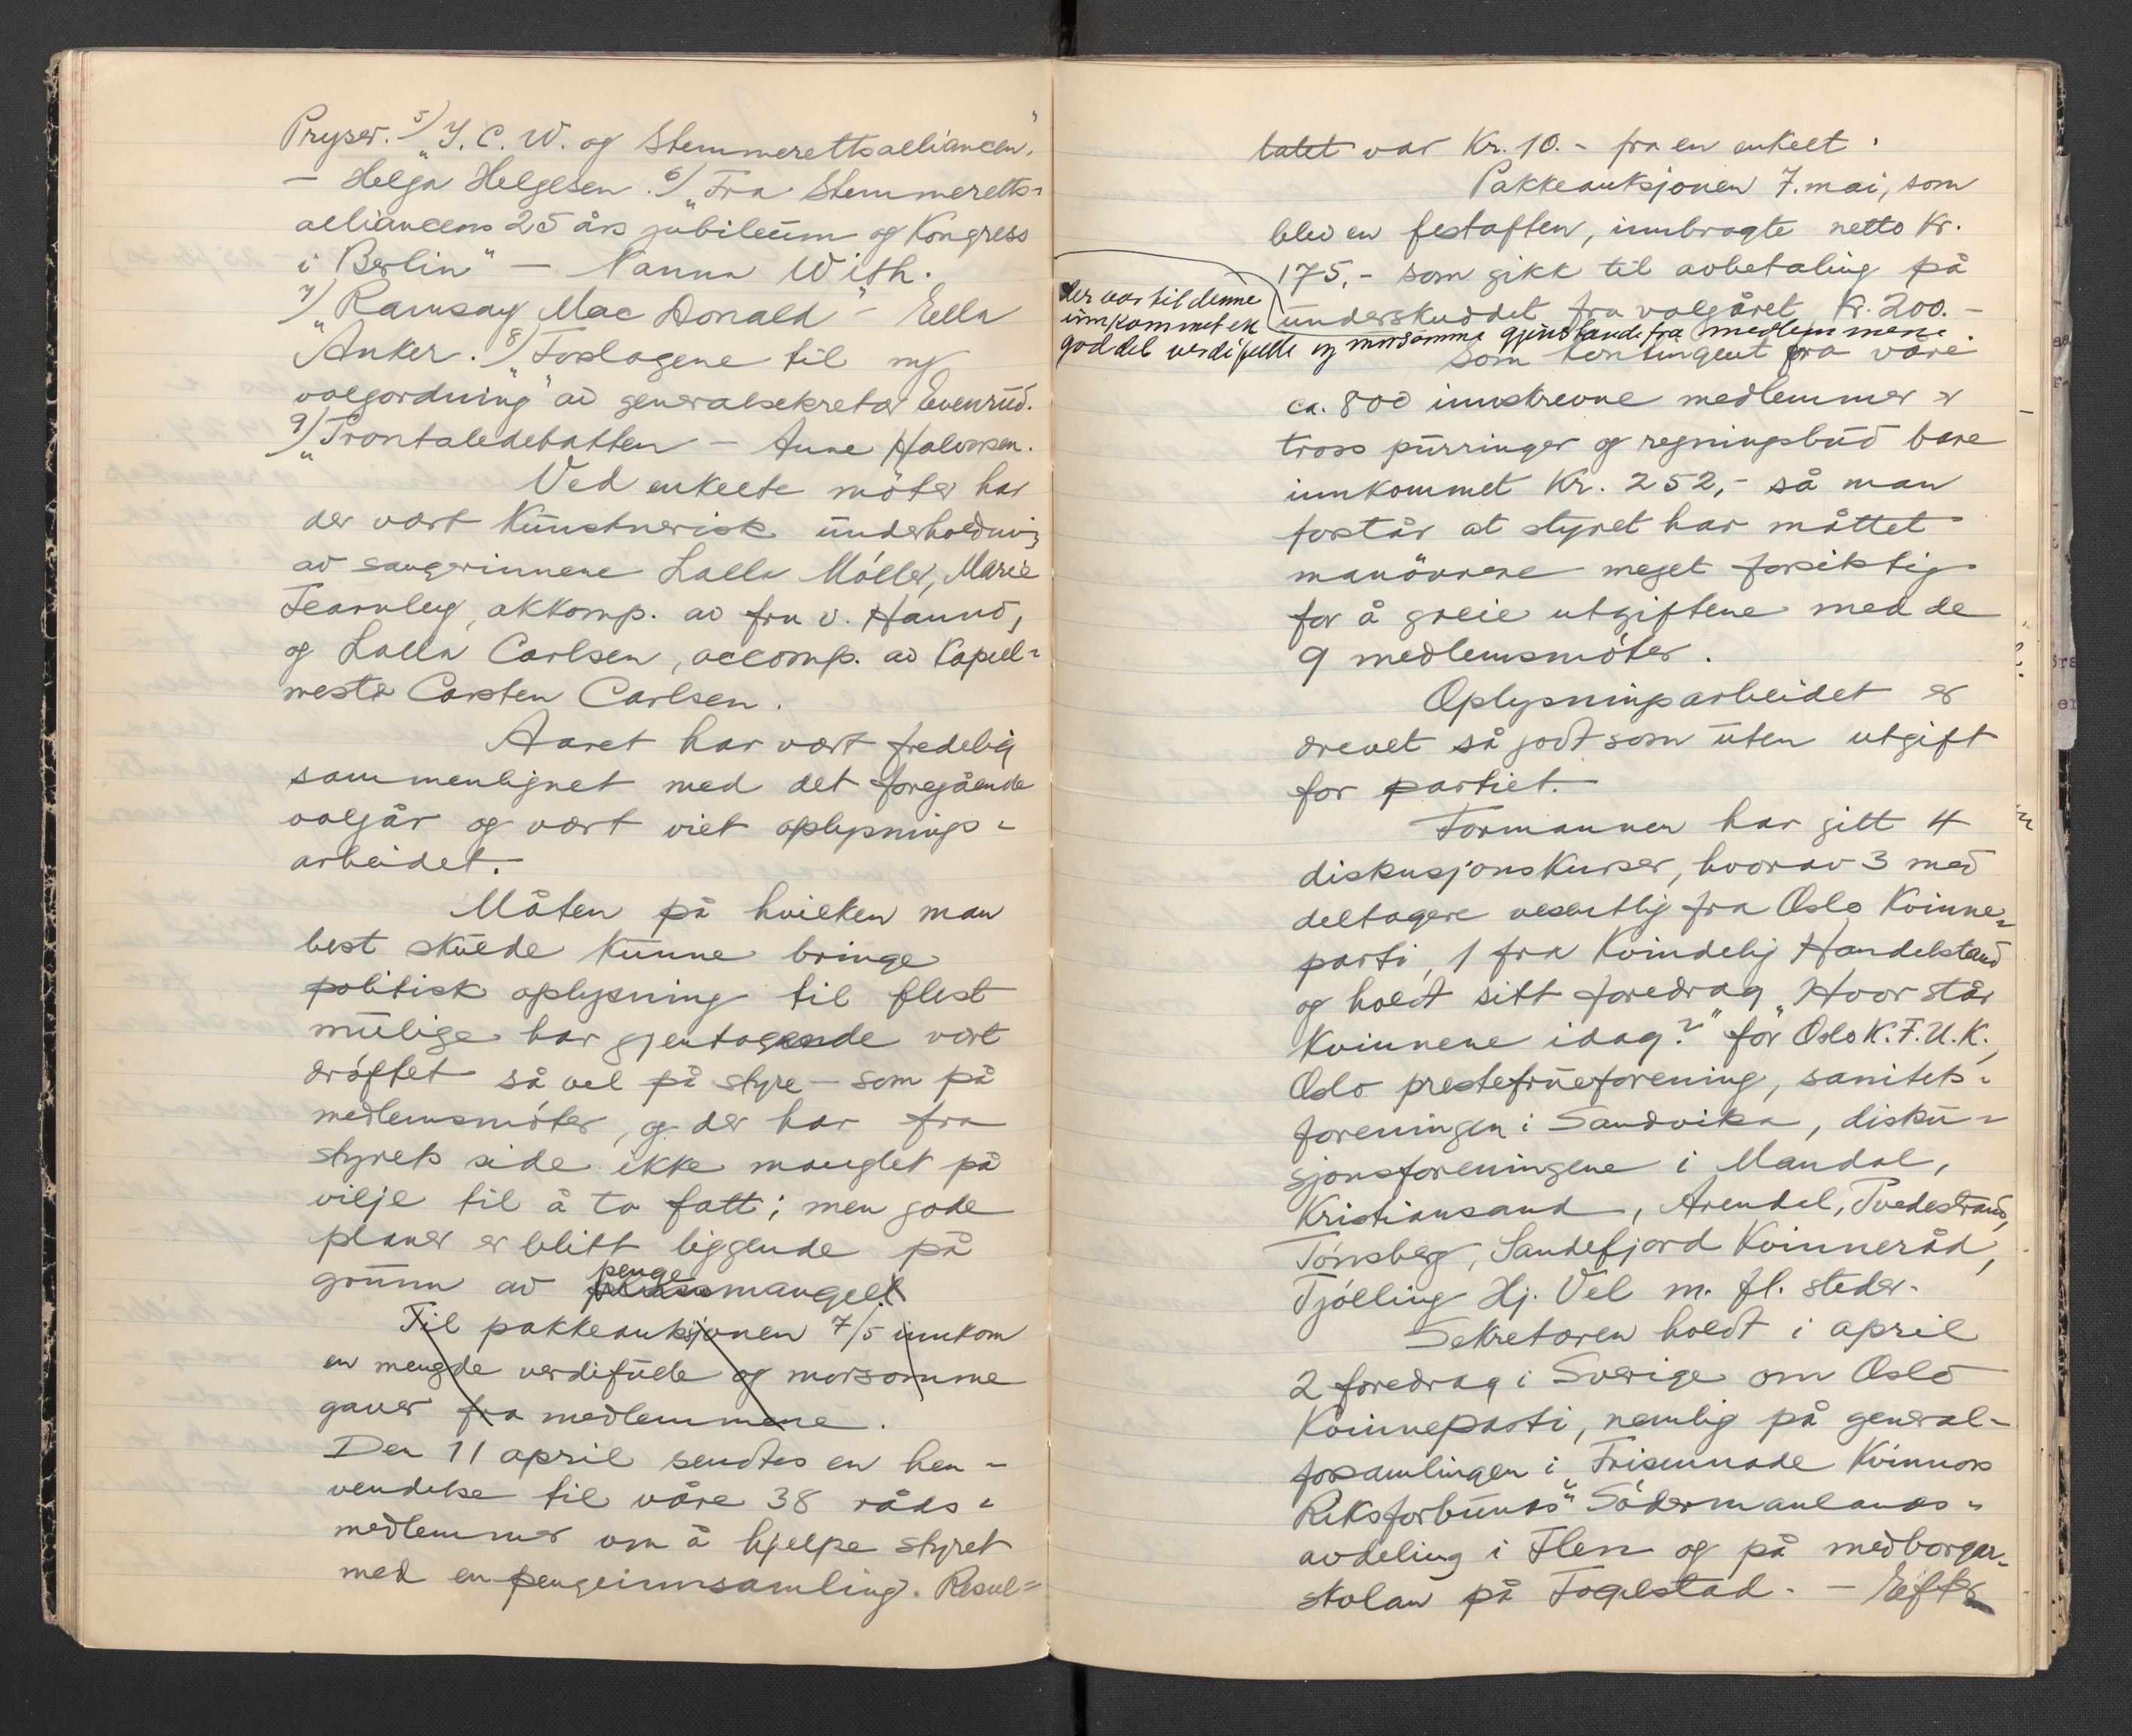 Pryser. 5/ „I. C. W. og Stemmerettsalliancen"
— Helga Helgesen. 6/ „Fra Stemmeretts-
alliancens 25 års jubileum og Kongress
i Berlin" — Nanna With.
7/ „Ramsay Mac Donald" - Ella
Anker. 8/ „Forslagene til ny
valgordning" av generalsekretær Evenrud.
9/ „Trontaledebatten — Aune Halvorsen.
Ved enkelte møter har
der vært Kunstnerisk underholdning
av sangerinnene Lalla Møller, Marie
Fearnley, akkomp. av fru v. Hanno,
og Lalla Carlsen, accomp. av Capell-
mester Carsten Carlsen.
Aaret har vært fredelig
sammenlignet med det foregående
valgår og vært viet oplysnings-
arbeidet.
Måten på hvilken man
best skulde kunne bringe
politisk oplysning til flest
mulige har gjentagende vært
drøftet så vel på styre - som på
medlemsmøter, og der har fra
styrets side ikke manglet på
vilje til å ta fatt; men gode
planer er blitt liggende på
grunn av pengemangel.
Til pakkeauksjonen 7/5 innkom
en mengde verdifulle og morsomme
gaver fra medlemmene.
Den 11 april sendtes en hen-
vendelse til våre 38 råds-
medlemmer om å hjelpe styret
med en pengeinnsamling. Resul-
tatet var Kr. 10.- fra en enkelt.
Pakkeauksjonen 7. mai, som
blev en festaften, innbragte netto Kr.
175,- som gikk til avbetaling på
underskuddet fra valgåret, Kr. 200.-
der var til denne
innkommet en
god del verdifulle og morsomme gjenstande fra medlemmene
Som kontingent fra våre
ca. 800 innskrevne medlemmer er
tross purringer og regningsbud bare
innkommet Kr. 252,- så man
forstår at styret har måttet
manövrere meget forsiktig
for å greie utgiftene med de
9 medlemsmøter.
Oplysningsarbeidet er
drevet så godt som uten utgift
for partiet.
Formannen har gitt 4
diskusjonskurser, hvorav 3 med
deltagere vesentlig fra Oslo Kvinne-
parti, 1 fra Kvindelig Handelstand
og holdt sitt foredrag „Hvor står
Kvinnene idag?" for Oslo K.F.U.K.,
Oslo prestefrueforening, sanitets-
foreningen i Sandvika, disku-
sjonsforeningene i Mandal,
Kristiansand, Arendal, Tvedestrand,
Tønsberg, Sandefjord Kvinneråd,
Tjølling Hj. Vel m. fl. steder.
Sekretæren holdt i april
2 foredrag i Sverige om Oslo
Kvinneparti, nemlig på general-
forsamlingen i „Frisinnade Kvinnors
Riksförbunds" Södermanlands-
avdeling i Flen og på medborgar-
skolan på Fogelstad. — Efter